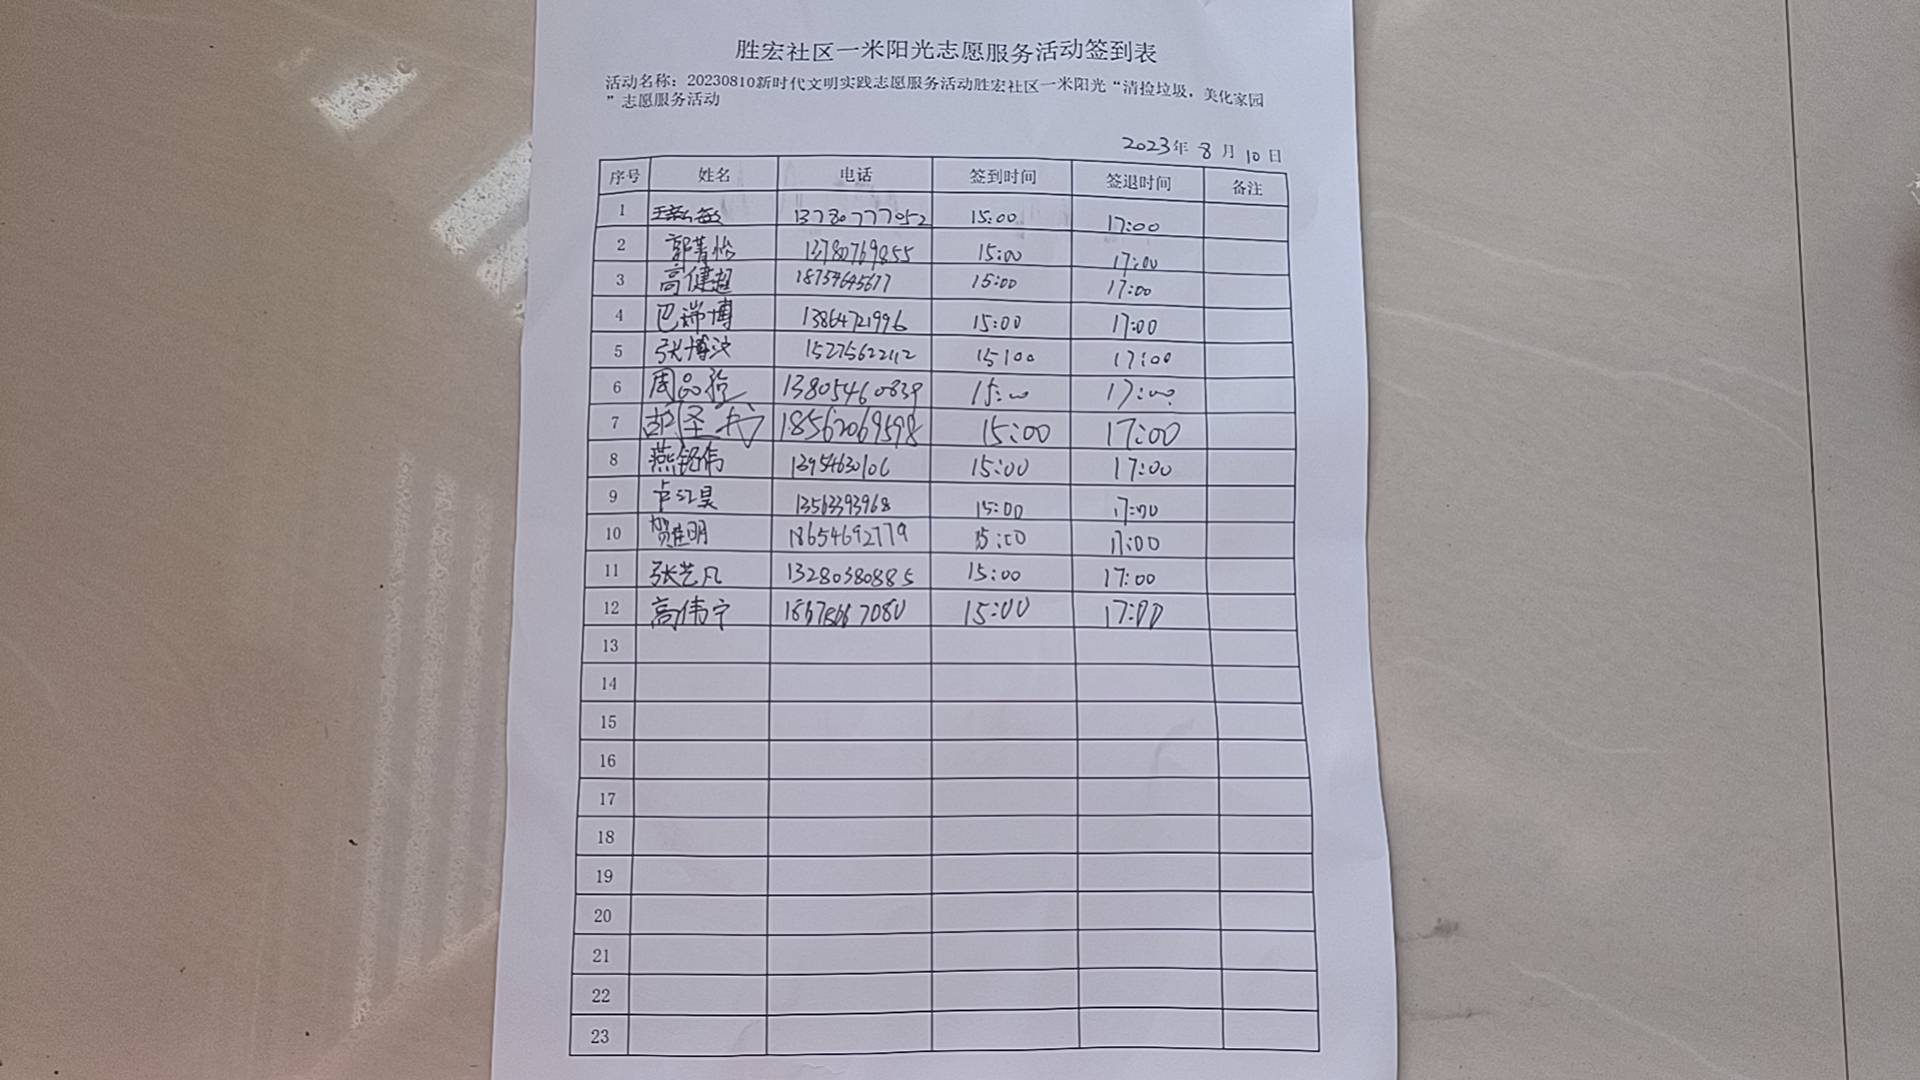 胜宏社区一米阳光志愿服务活动签到表
活动名称：20230810新时代文明实践志愿服务活动胜宏社区一米阳光“清捡垃圾，美化家园
”志愿服务活动
2023年 8 月 10 日
序号 姓名 电话 签到时间 签退时间 备注
1 13780777052 15:00 17:00
2 郭菁怡 13780769855 15:00 17:00
3 高健超 18754645677 15:00 17:00
4 巴瑞博 13864721996 15:00 17:00
5 张博 15275622112 15:00 17:00
6 周品 13805460839 15:00 17:00
7 胡圣 18562069598 15:00 17:00
8 燕铭伟 13954630106 15:00 17:00
9 卢江昊 13563393968 15:00 17:00
10 贺佳明 18654692779 15:00 17:00
11 张艺凡 13280380885 15:00 17:00
12 高伟宁 15:00 17:00
13
14
15
16
17
18
19
20
21
22
23